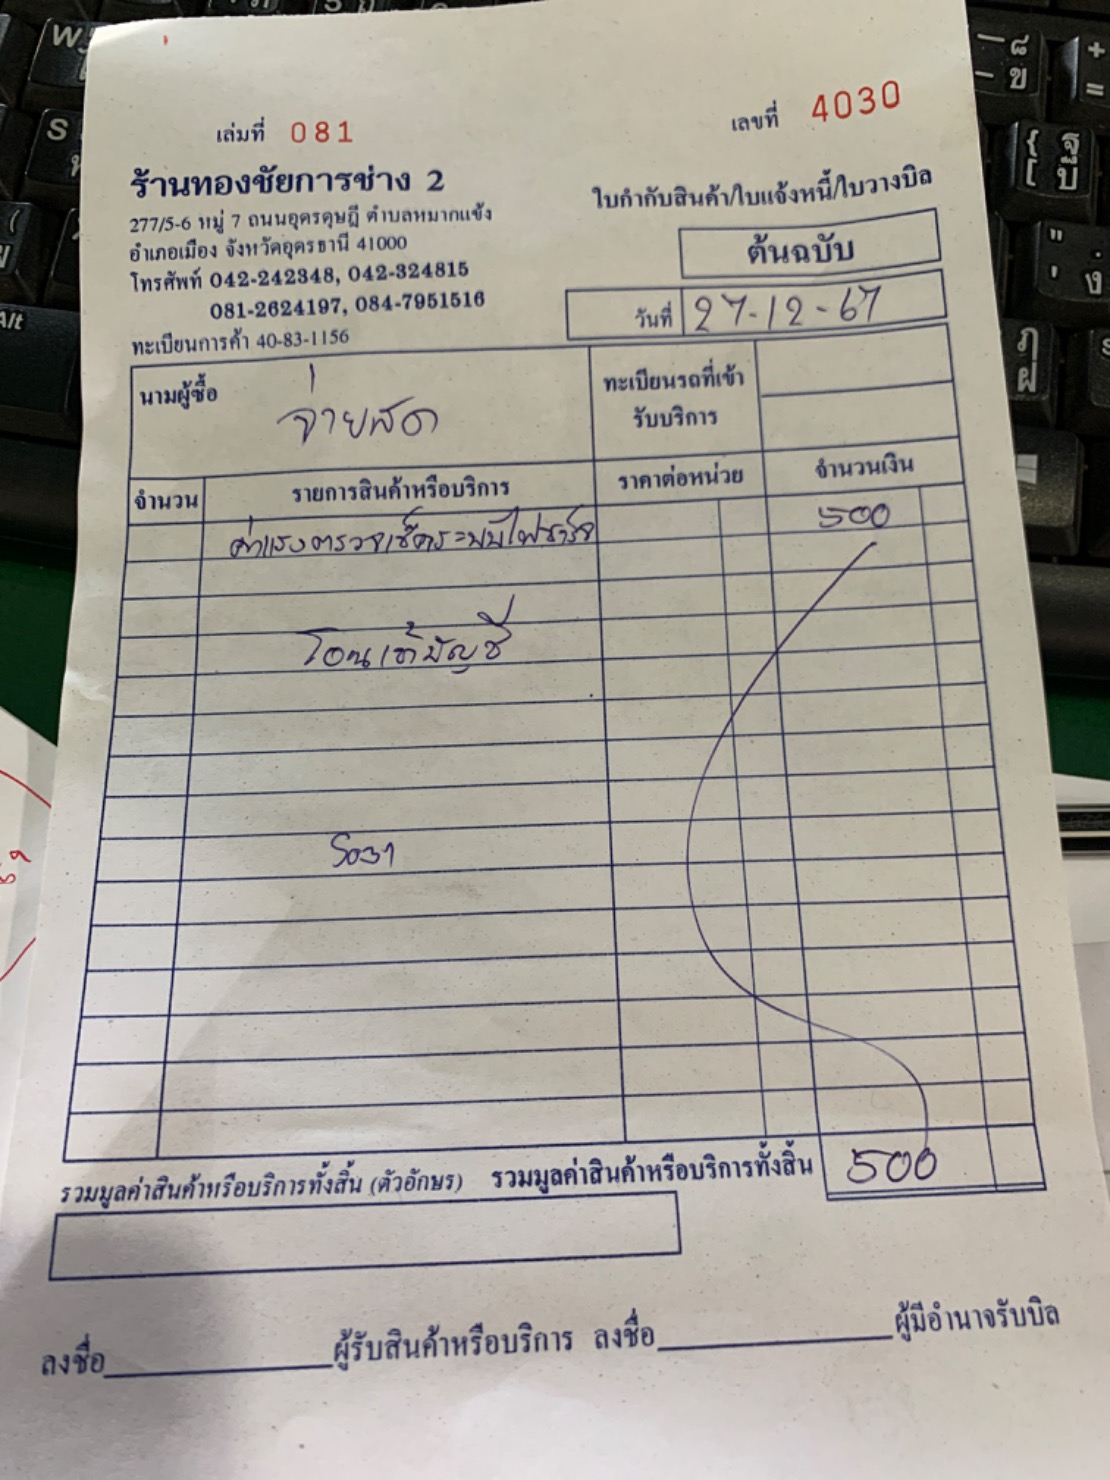 เล่มที่ 081
เลขที่ 4030
ร้านทองชัยการช่าง 2
277/5-6 หมู่ 7 ถนนอุดรดุษฎี ตำบลหมากแข้ง
อำเภอเมือง จังหวัดอุดรธานี 41000
โทรศัพท์ 042-242348, 042-324815
081-2624197, 084-7951516
ทะเบียนการค้า 40-83-1156
ใบกำกับสินค้า/ใบแจ้งหนี้/ใบวางบิล
ต้นฉบับ
วันที่ 27-12-67
นามผู้ซื้อ จ่ายสด
ทะเบียนรถที่เข้า
รับบริการ
จำนวน รายการสินค้าหรือบริการ ราคาต่อหน่วย จำนวนเงิน
ค่าแรงตรวจเช็คระบบไฟชาร์จ 500
โอนเข้าบัญชี
รวมมูลค่าสินค้าหรือบริการทั้งสิ้น (ตัวอักษร) รวมมูลค่าสินค้าหรือบริการทั้งสิ้น 500
ลงชื่อ ผู้รับสินค้าหรือบริการ ลงชื่อ ผู้มีอำนาจรับบิล